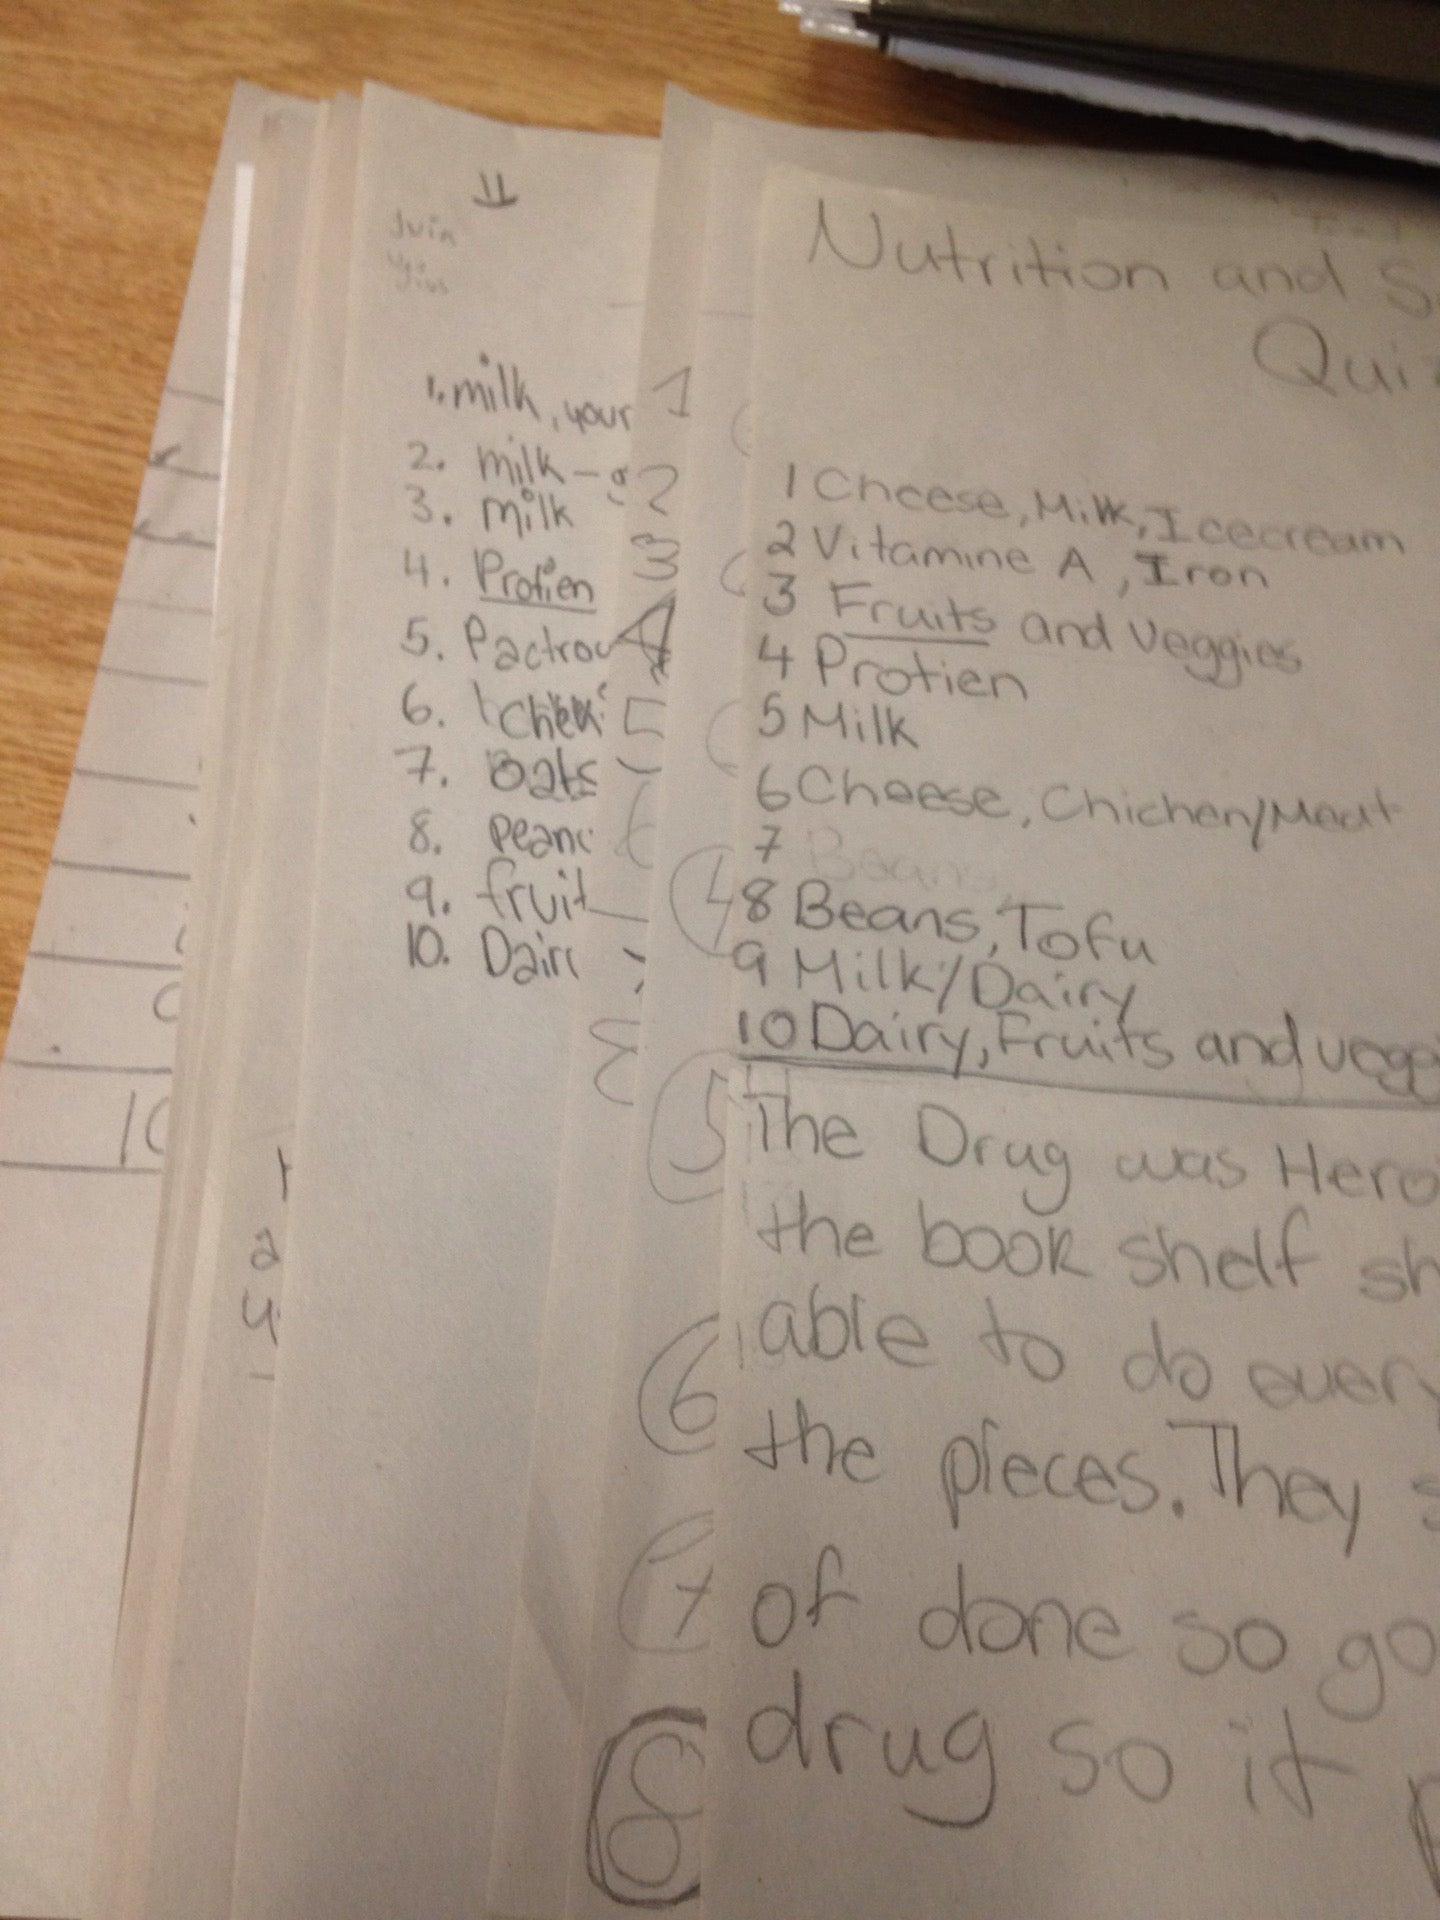 11
1. milk, your
2. milk -
3. milk
4. Protien
5. Pactrou
6. chek
7. Oats
8. peanu
9. fruit
10. Dair
1
2
3
4
5
10
1
2
4
3
4
5
6
7
8
Nutrition and S
Quiz
1 Cheese, Milk, Icecream
2 Vitamine A, Iron
3 Fruits and Veggies
4 Protien
5 Milk
6 Cheese, Chichen/Meat
7 Beans
8 Beans, Tofu
9 Milk/Dairy
10 Dairy, Fruits and vegg
The Drug was Hero
the book shelf sh
able to do every
the pieces. They s
of done so go
drug so it